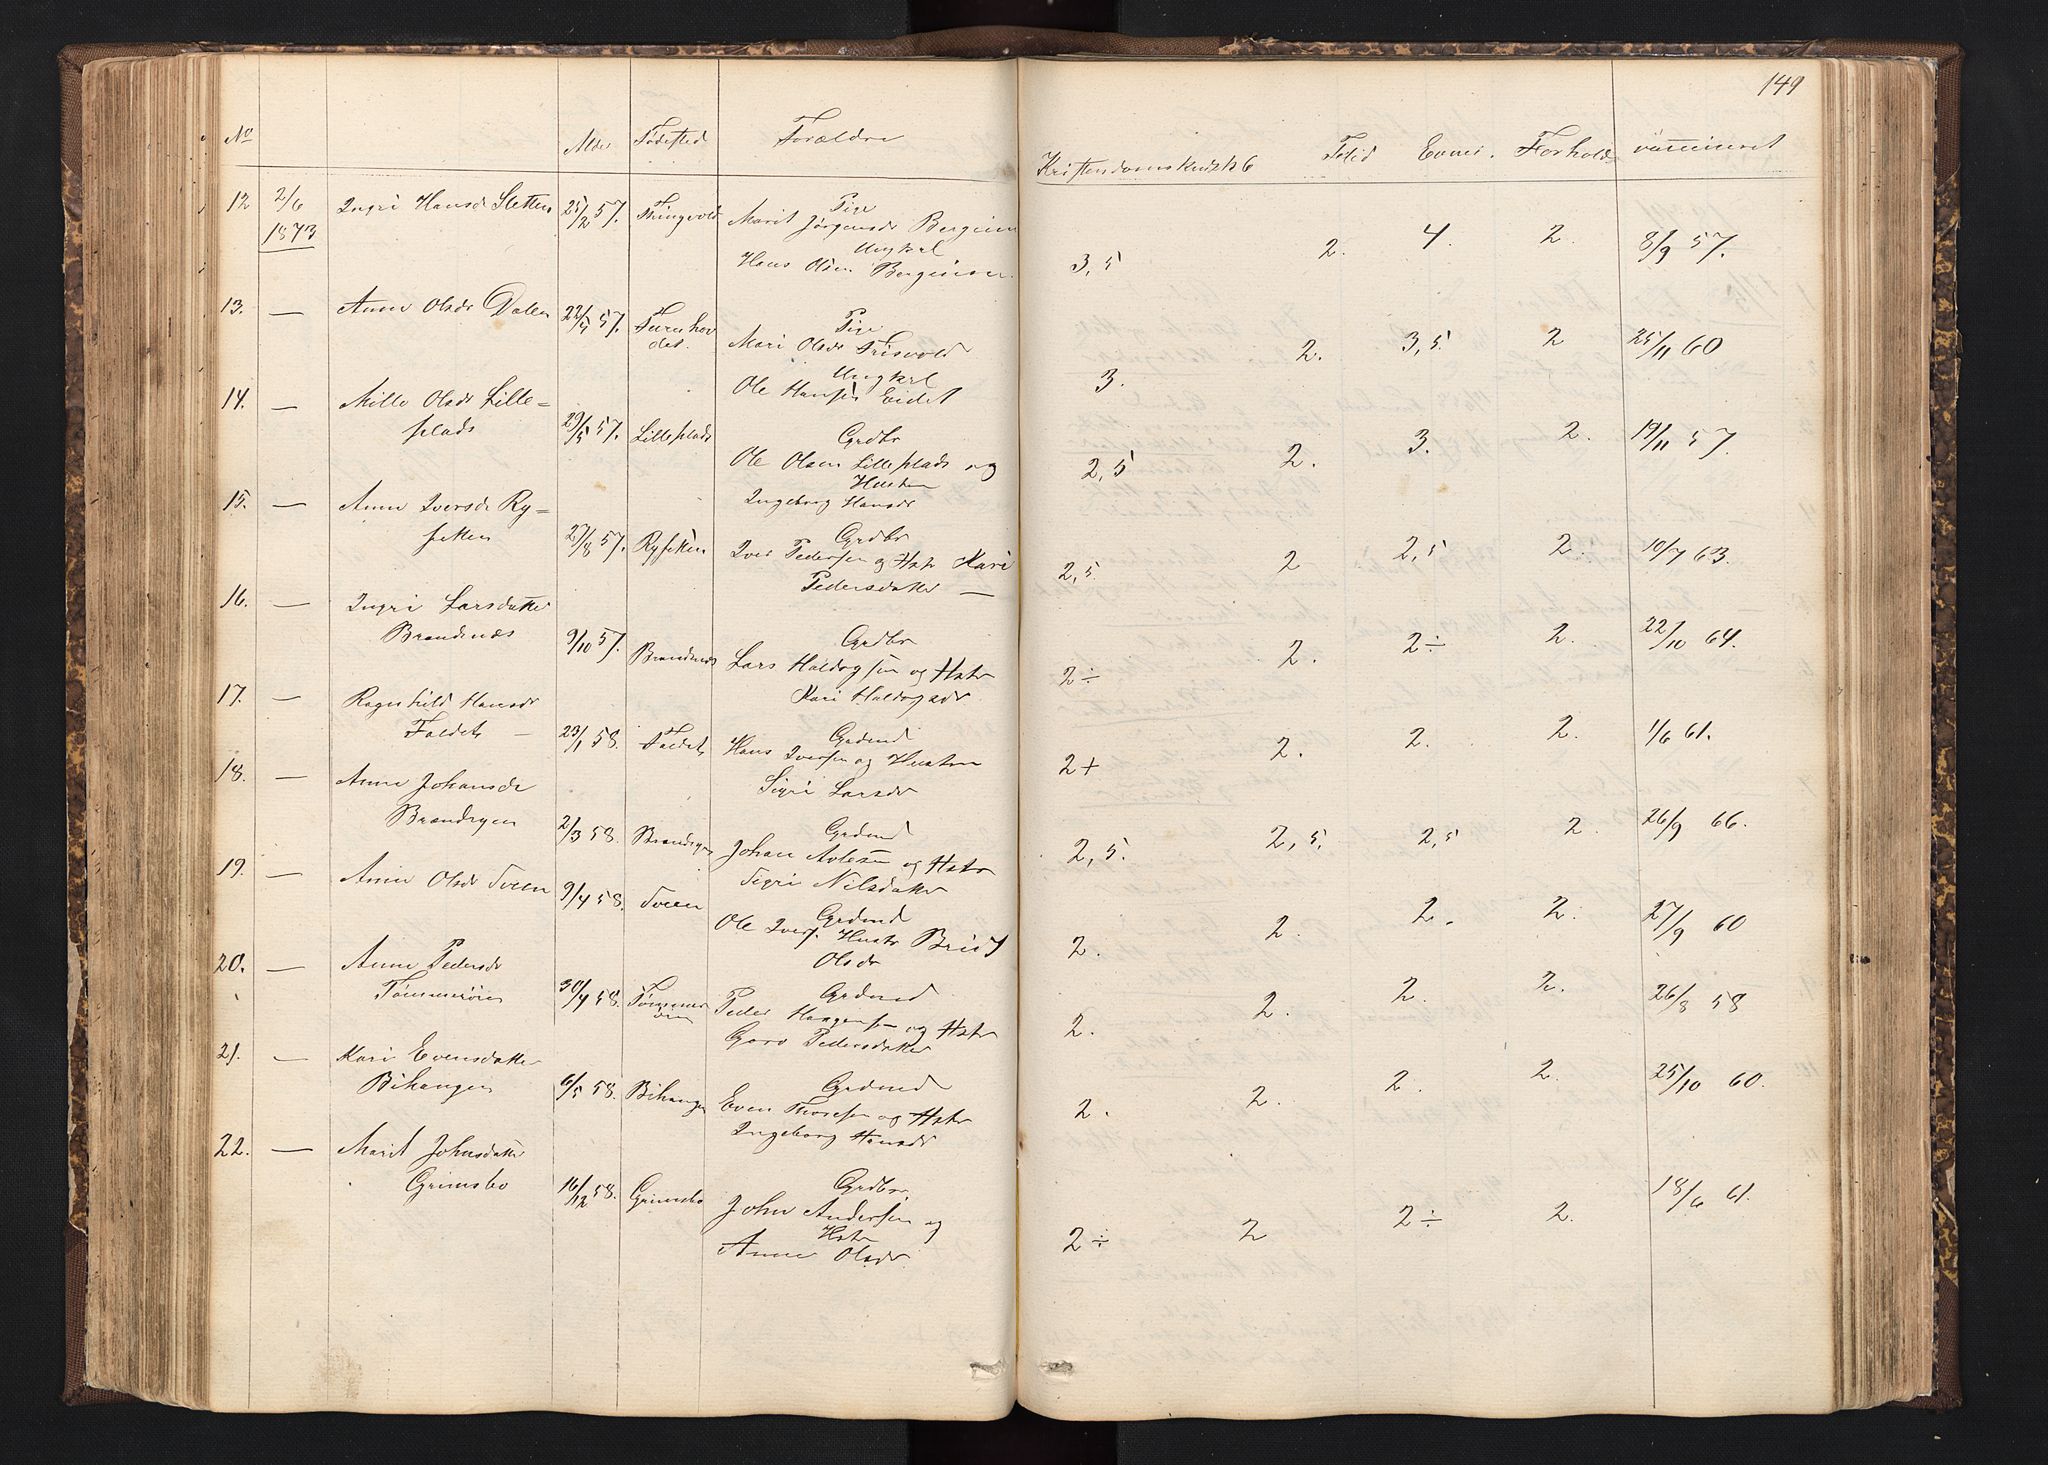 149
No Alder Fødested Forældre Kristendomskundskb Flid Evner. Forhold vaccineret
12 2/6 1873 Ingri Hansdr Sletten 25/2 57. Tingvold Pige
Marit Jørgensdr Bergeien
Ungkrl
Hans Olsen Bergeien.
3,5 2. 4. 2. 8/9 57.
13. — Anne Olsdr Dalen 22/4 57. Furuhovdet. Pige
Mari Olsdr Trisvold
Ungkrl
Ole Hansen Eidet
3. 2. 3,5. 2 25/11 60
14. — Mille Olsdr Lille=
plads 29/5 57. Lilleplads Grdbr
Ole Olsen Lilleplads og
Hustru
Ingeborg Hansdr
2,5 2. 3. 2. 19/11 57.
15. — Anne Iversdr Ry=
setten 27/8 57. Rysetten Grdbr
Iver Pedersen og Hstr Kari
Pedersdatter —
2,5. 2 2,5 2. 10/7 63.
16. — Ingri Larsdatter
Brændnæs 9/10 57. Brændnæs Grdbr
Lars Haldogsen og Hstr
Kari Haldogsdr
2÷ 2. 2÷ 2. 22/10 64.
17. — Ragnhild Hansdr
Faldet — 23/1 58. Faldet Grdmd
Hans Iversen og Hustru
Sigri Larsdr
2+ 2. 2. 2. 1/6 61.
18. — Anne Johansdr
Brændryen 2/3 58. Brændryen Grdmd
Johan Avlesen og Hstr
Sigri Nilsdatter
2,5. 2,5. 2,5 2. 26/9 66.
19. — Anne Olsdr Tveen 9/4 58. Tveen Grdmd
Ole Ivers. Hustr Brit
Olsdr
2. 2. 2. 2. 27/9 60
20. — Anne Pedersdr
Tømmerøien 30/4 58. Tømmerøien Grdmd
Peder Haagensen og Hstr
Goro Pedersdatter
2. 2. 2. 2. 26/8 58
21. — Kari Evensdatter
Bihangen 6/5 58. Bihangen Grdmd
Even Thoresen og Hstr
Ingeborg Hansdr
2. 2. 2. 2. 25/10 60.
22. — Marit Johnsdatter
Grimsbo 16/12 58. Grimsbo Grdbr.
John Andersen og
Hstr
Anne Olsdr.
2÷ 2 2÷ 2. 18/6 61.